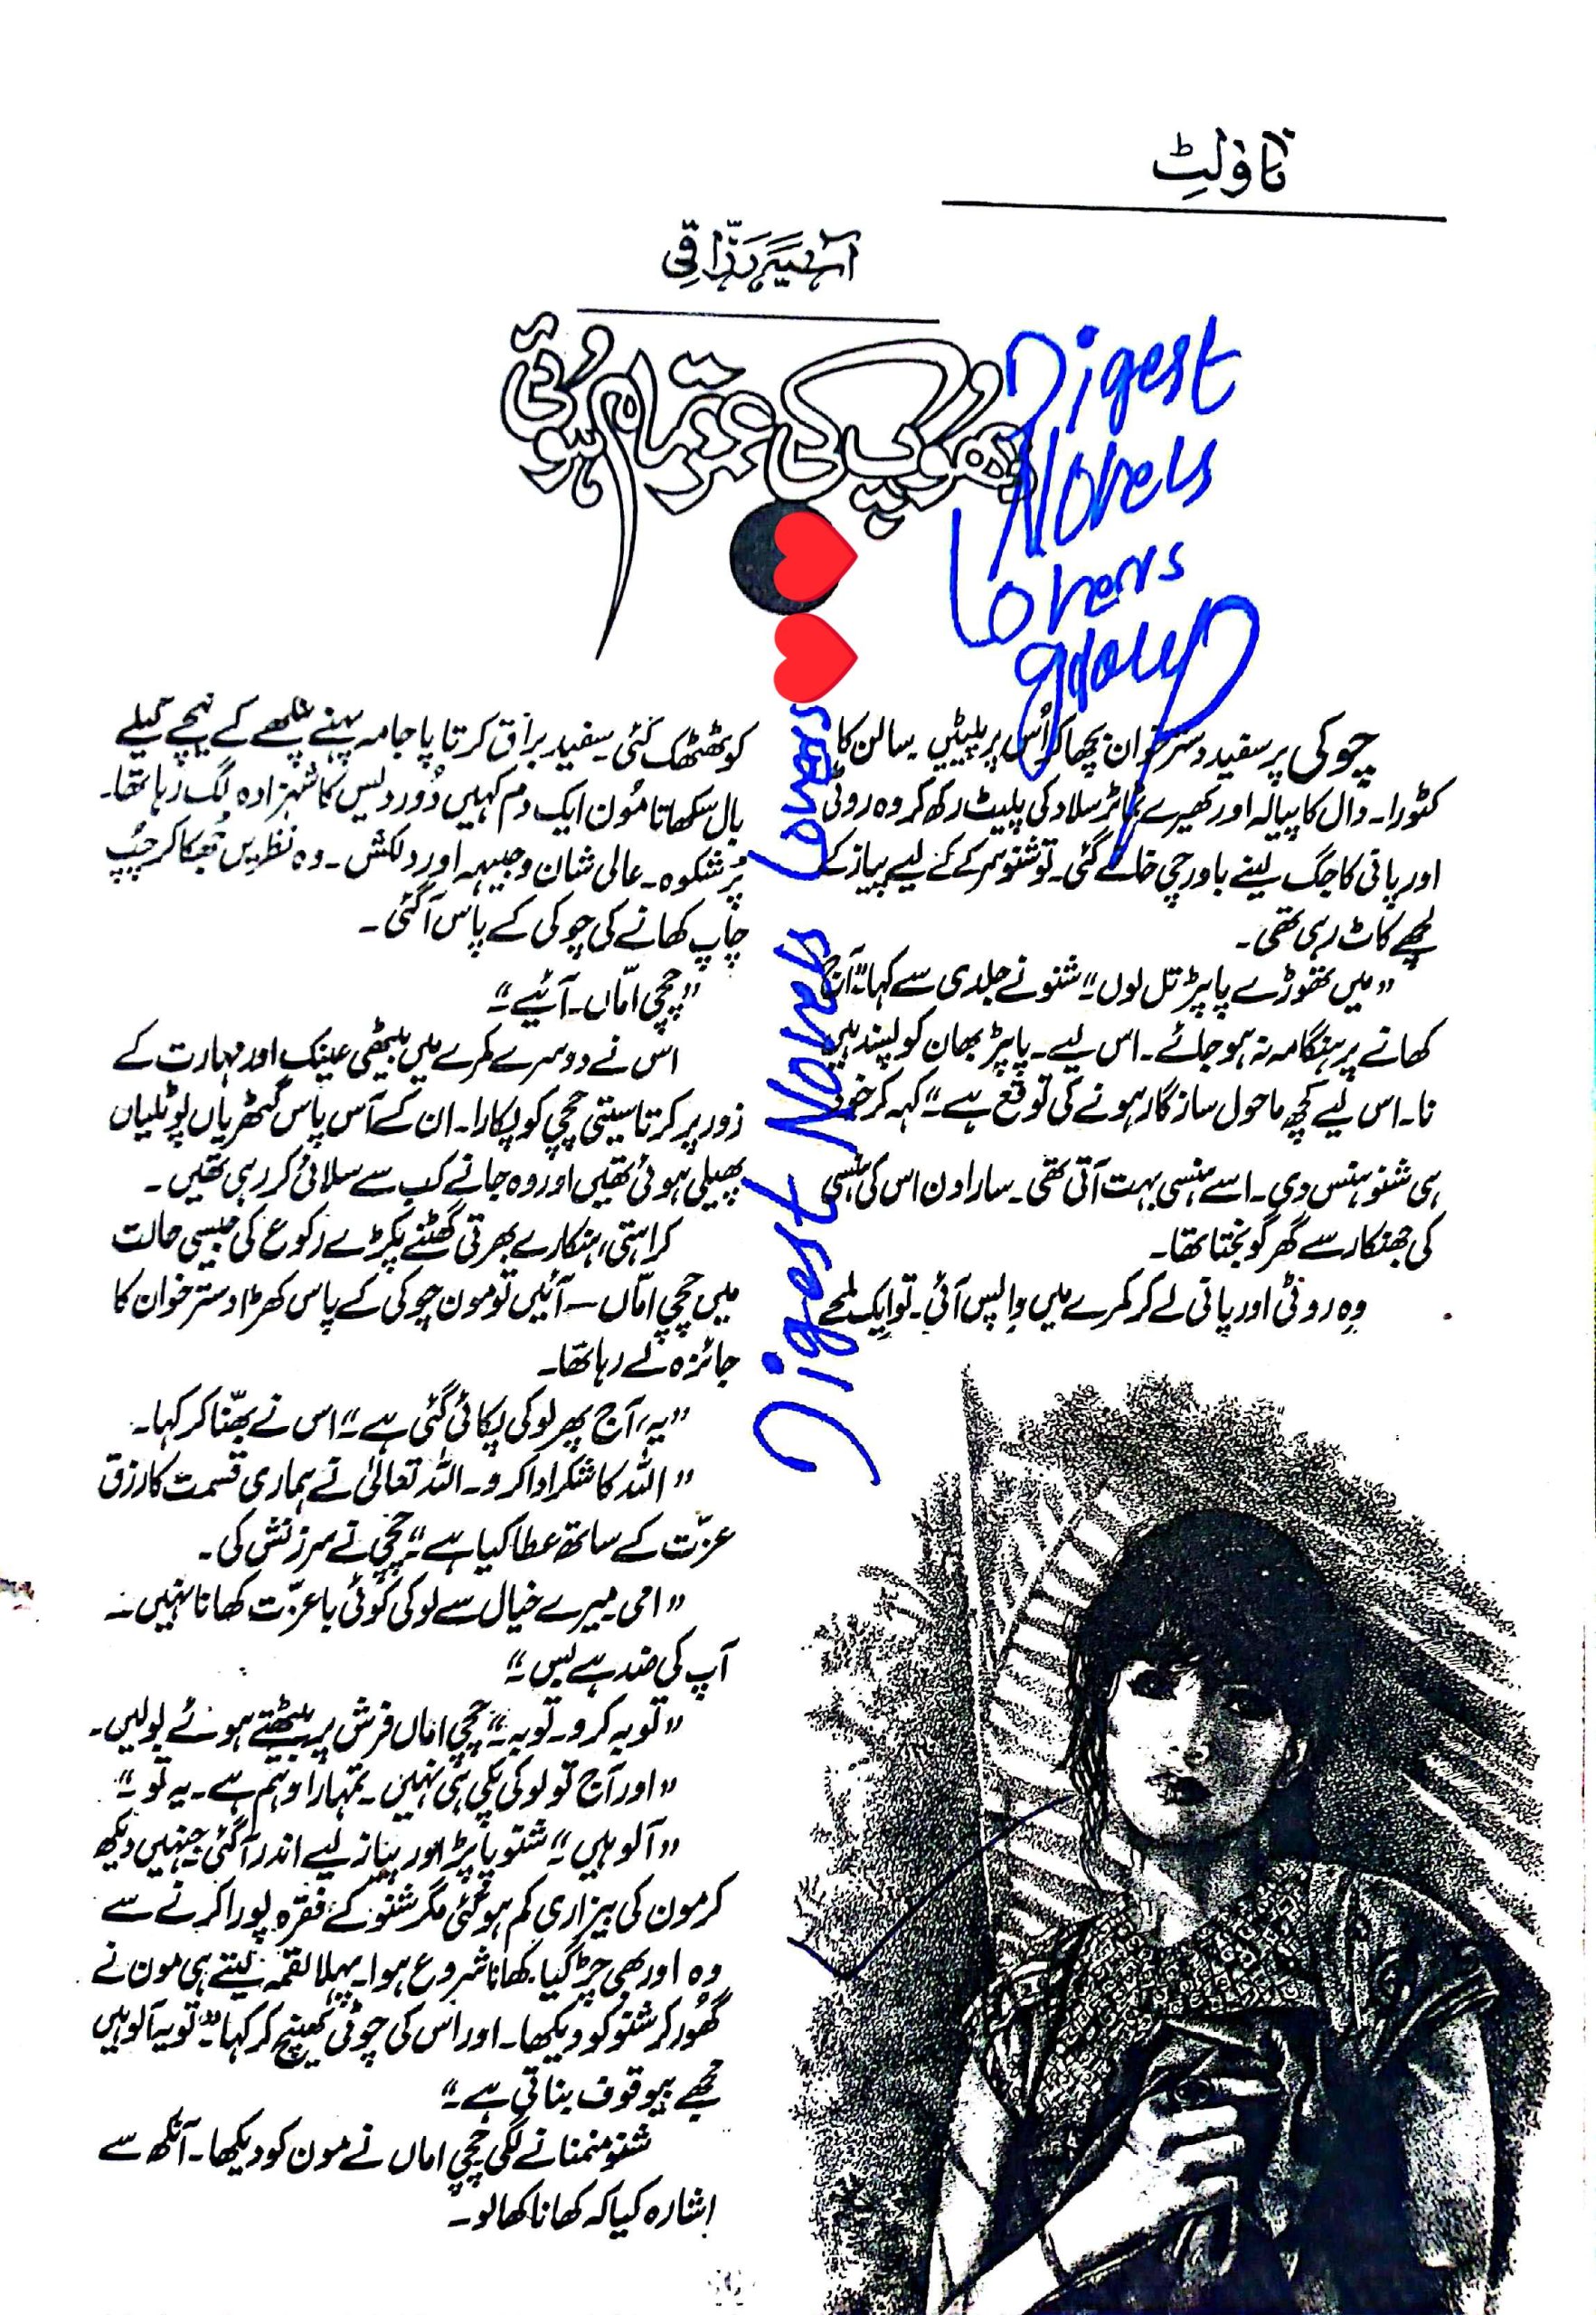 ناولٹ
آسیہ رزاقی
دھوپ کی عمر تمام ہوئی
Digest
Novels
Lovers
group
چوکی پر سفید دسترخوان بچھا کر اُس پر پلیٹیں۔ سالن کا
کٹورا۔ دال کا پیالہ اور کھیرے ٹماٹر سلاد کی پلیٹ رکھ کر وہ روٹی
اور پانی کا جگ لینے باورچی خانے گئی۔ تو شنو سرکے کے لیے پیاز کے
لچھے کاٹ رہی تھی۔
”میں تھوڑے پاپڑ تل لوں“۔ شنو نے جلدی سے کہا۔ ”آج
کھانے پر ہنگامہ نہ ہو جائے۔ اس لیے۔ پاپڑ بھان کو پسند ہیں
نا۔ اس لیے کچھ ماحول سازگار ہونے کی توقع ہے“۔ کہہ کر خود
ہی شنو ہنس دی۔ اسے ہنسی بہت آتی تھی۔ سارا دن اس کی ہنسی
کی جھنکار سے گھر گونجتا تھا۔
وہ روٹی اور پانی لے کر کمرے میں واپس آئی۔ تو ایک لمحے
Digest Novels Lovers
کو ٹھٹھک گئی۔ سفید براق کرتا پاجامہ پہنے پنکھے کے نیچے گیلے
بال سکھاتا مُون ایک دم کہیں دُور دیس کا شہزادہ لگ رہا تھا۔
پُرشکوہ۔ عالی شان وجیہہ اور دلکش۔ وہ نظریں جُھکا کر چُپ
چاپ کھانے کی چوکی کے پاس آ گئی۔
”چچی امّاں۔ آئیے“۔
اس نے دوسرے کمرے میں بیٹھی عینک اور مہارت کے
زور پر کرتا سیتی چچی کو پکارا۔ ان کے آس پاس گٹھڑیاں پوٹلیاں
پھیلی ہوئی تھیں اور وہ جانے کب سے سلائی کر رہی تھیں۔
کراہتی، ہنکارے بھرتی گھٹنے پکڑے رکوع کی جیسی حالت
میں چچی امّاں — آئیں تو مون چوکی کے پاس کھڑا دسترخوان کا
جائزہ لے رہا تھا۔
”یہ، آج پھر لوکی پکائی گئی ہے“۔ اس نے بھنّا کر کہا۔
”اللہ کا شکر ادا کرو۔ اللہ تعالیٰ نے ہماری قسمت کا رزق
عزّت کے ساتھ عطا کیا ہے“۔ چچی نے سرزنش کی۔
”امی میرے خیال سے لوکی کوئی باعزّت کھانا نہیں۔
آپ کی ضد ہے بس“۔
”توبہ کرو۔ توبہ“۔ چچی اماں فرش پر بیٹھتے ہوئے بولیں۔
”اور آج تو لوکی پکی ہی نہیں۔ تمہارا وہم ہے۔ یہ تو“۔
”آلو ہیں“۔ شنو پاپڑ اور پیاز لیے اندر آ گئی جنہیں دیکھ
کر مون کی بیزاری کم ہو گئی مگر شنو کے فقرہ پورا کرنے سے
وہ اور بھی چڑ گیا۔ کھانا شروع ہوا۔ پہلا لقمہ لیتے ہی مون نے
گُھور کر شنو کو دیکھا۔ اور اس کی چوٹی کھینچ کر کہا۔ ”تو یہ آلو ہیں
مجھے بیوقوف بناتی ہے“۔
شنو منمنانے لگی چچی اماں نے مون کو دیکھا۔ آنکھ سے
اشارہ کیا کہ کھانا کھا لو۔